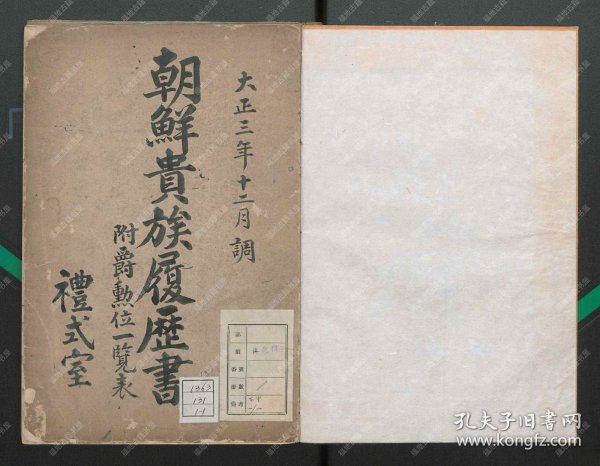 大正三年十二月調
朝鮮貴族履歴書
附爵勲位一覧表
禮式室
1363
131
1-1
孔夫子旧书网
www.kongfz.com